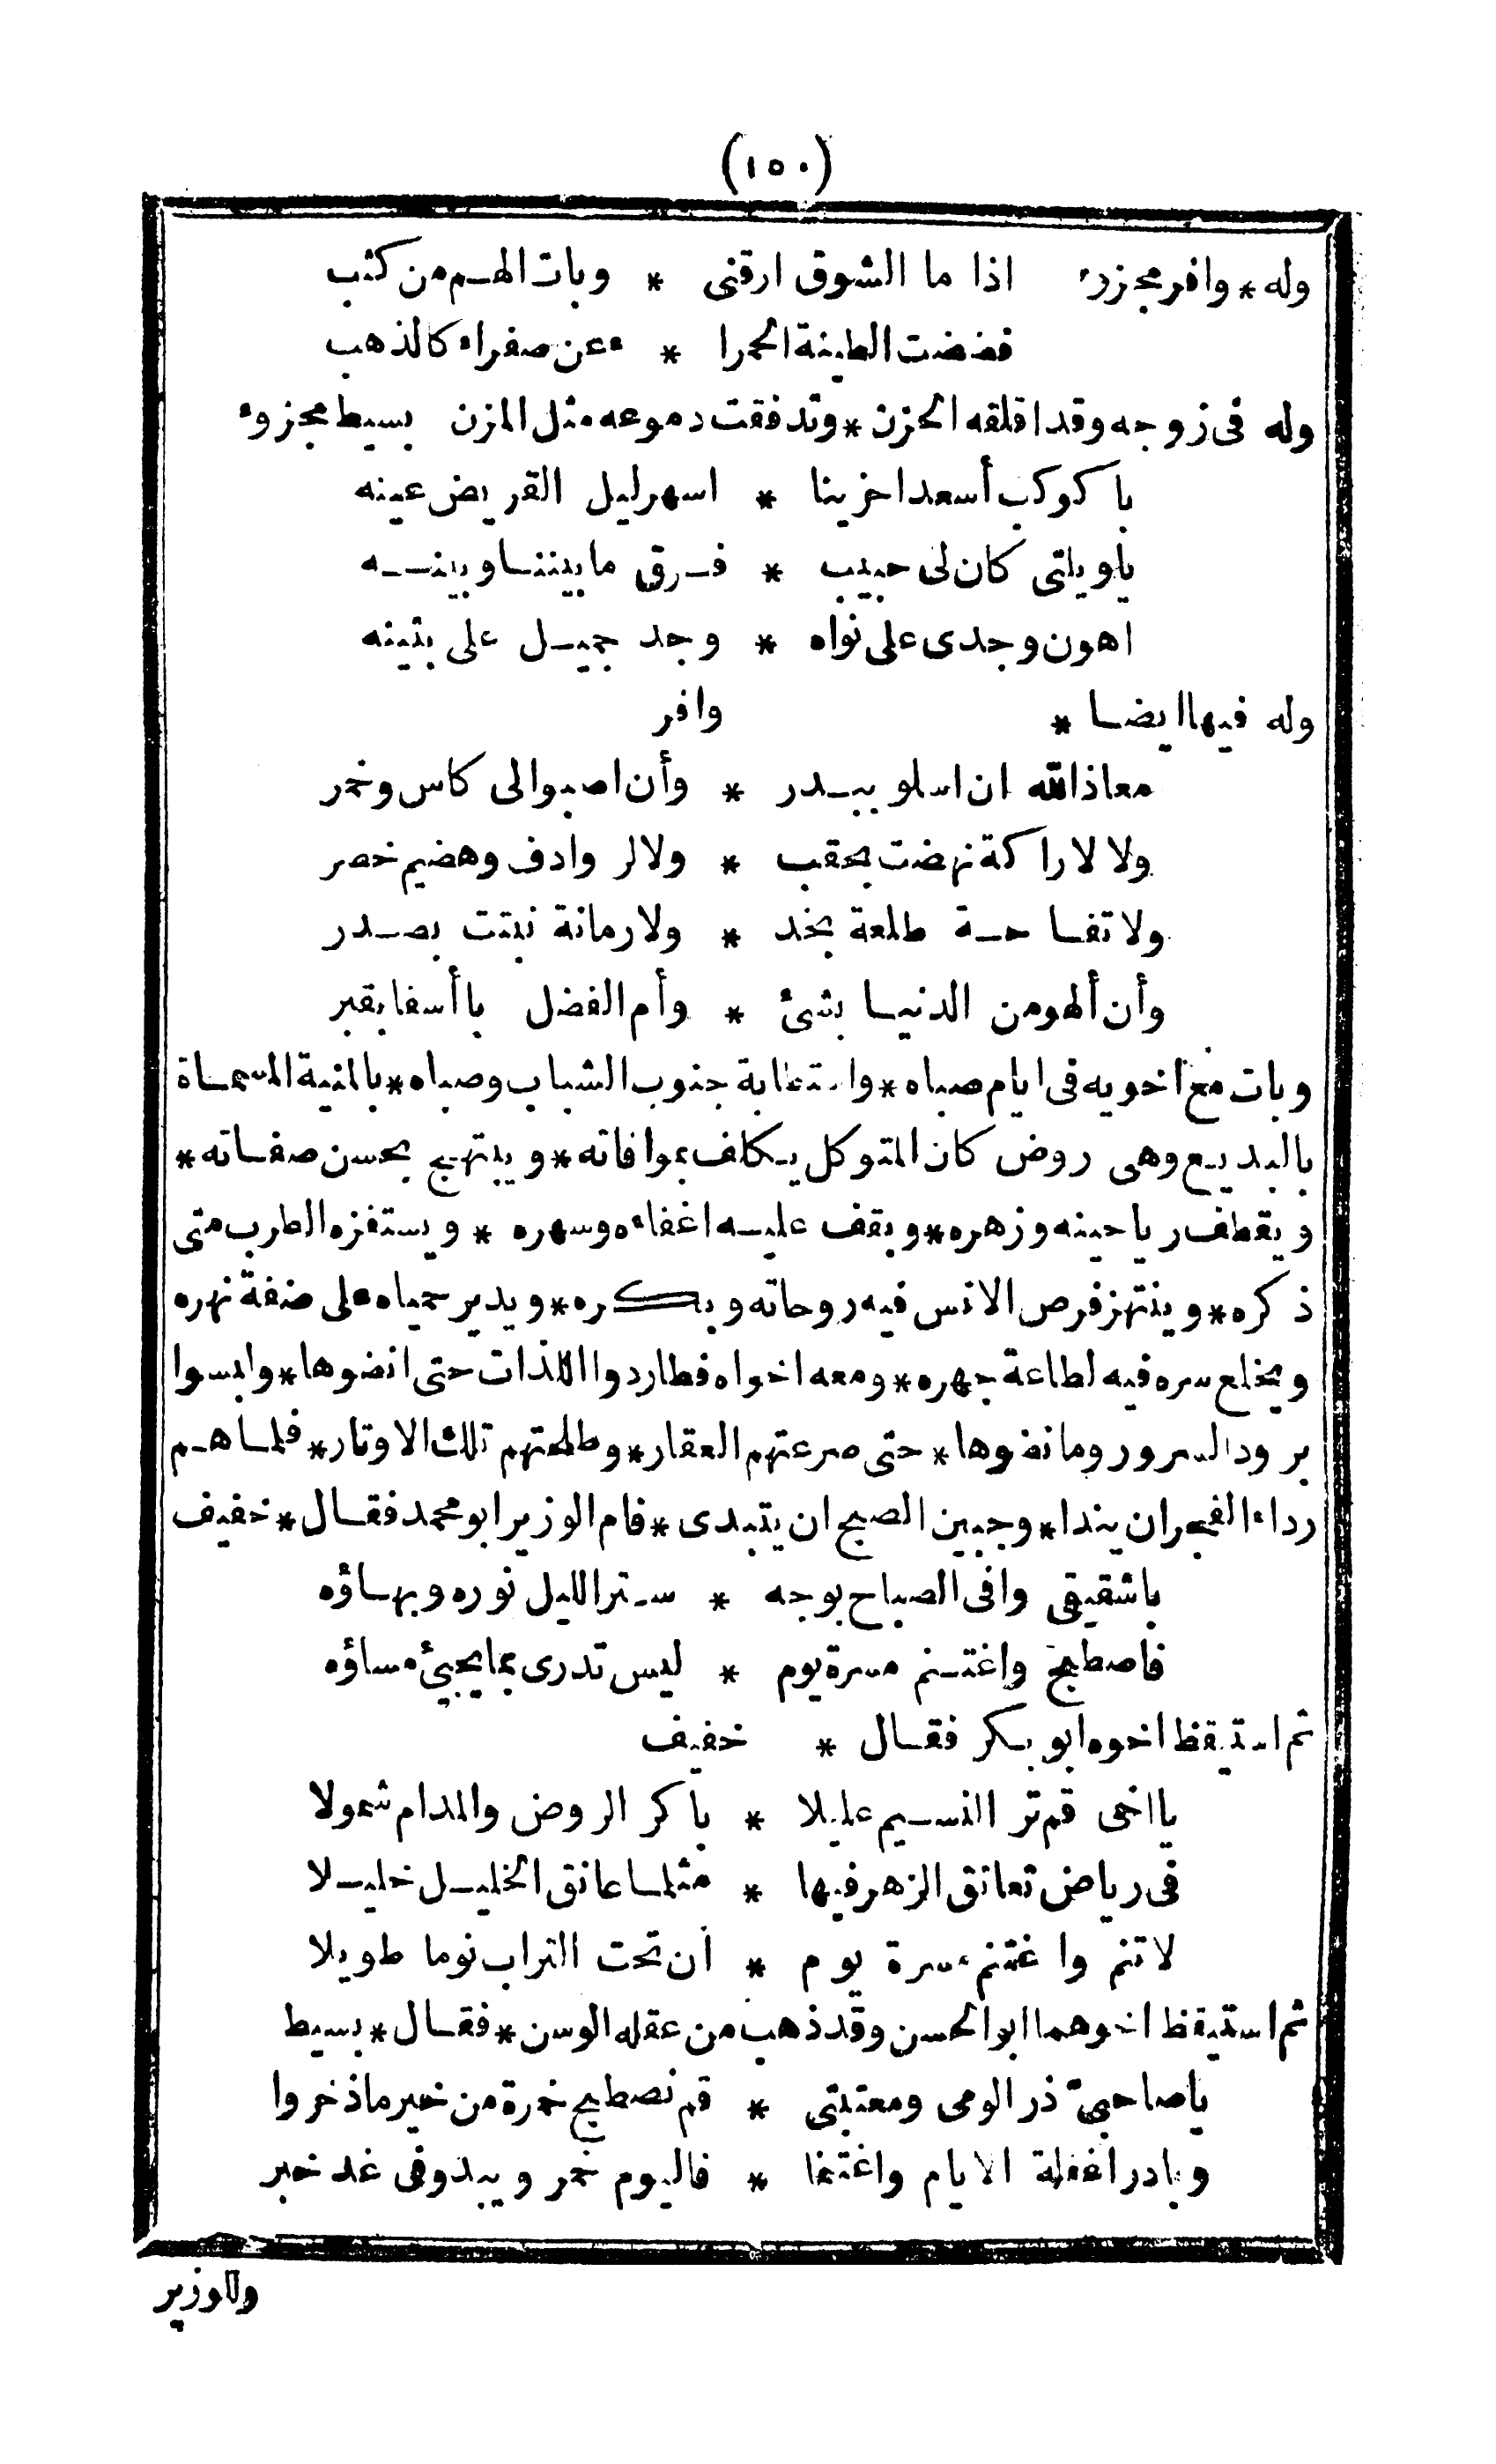 (١٥٠)
وله * وافر مجزوء اذا ما الشوق ارقنى * وبات الهم من كثب
فضضت الطينة الحمرا * ء عن صفراء كالذهب
وله فى زوجه وقد اقلقه الحزن * وتدفقت دموعه مثل المزن بسيط مجزوء
يا كوكب أسعدا حزينا * اسهر ليل القريض عينه
ياويلتى كان لى حبيب * فرق ما بيننا وبينه
اهون وجدى على نواه * وجد جميل على بثينه
وله فيها ايضا * وافر
معاذ الله ان اسلو ببدر * وأن اصبوا لى كاس وخمر
ولا لاراكة نهضت بحقب * ولا لروادف وهضيم خصر
ولا تفاحة طلعة بخد * ولا رمانة نبتت بصدر
وأن ألهو من الدنيا بشئ * وأم الفضل يا أسفا بقبر
وبات مع اخويه فى ايام صباه * واستطابة جنوب الشباب وصباه * بالمنية المسماة
بالبديع وهى روض كان المتوكل يكلف بموافاته * ويبتهج بحسن صفاته *
ويقطف رياحينه وزهره * ويقف عليه اغفاءه وسهره * ويستفزه الطرب متى
ذكره * وينتهز فرص الانس فيه روحاته وبكره * ويدير حمياه على ضفة نهره
ويخلع سره فيه لطاعة جهره * ومعه اخواه فطاردوا اللذات حتى انضوها * ولبسوا
برود السرور وما نضوها * حتى صرعتهم العقار * وطلحتهم تلك الاوتار * فلما هم
رداء الفجر ان يندا * وجبين الصبح ان يتبدى * قام الوزير ابو محمد فقال * خفيف
يا شقيقى وافى الصباح بوجه * ستر الليل نوره وبهاؤه
فاصطبح واغتنم مسرة يوم * ليس تدرى بما يجيئ مساؤه
ثم استيقظ اخوه ابو بكر فقال * خفيف
يا اخى قم تر النسيم عليلا * باكر الروض والمدام شمولا
فى رياض تعانق الزهر فيها * مثلما عانق الخليل خليلا
لا تنم واغتنم مسرة يوم * ان تحت التراب نوما طويلا
ثم استيقظ اخوهما ابو الحسن وقد ذهب من عقله الوسن * فقال * بسيط
يا صاحبىّ ذرا لومى ومعتبتى * قم نصطبح خمرة من خير ما ذخروا
وبادرا غفلة الايام واغتنما * فاليوم خمر ويبدو فى غد خبر
وللوزير